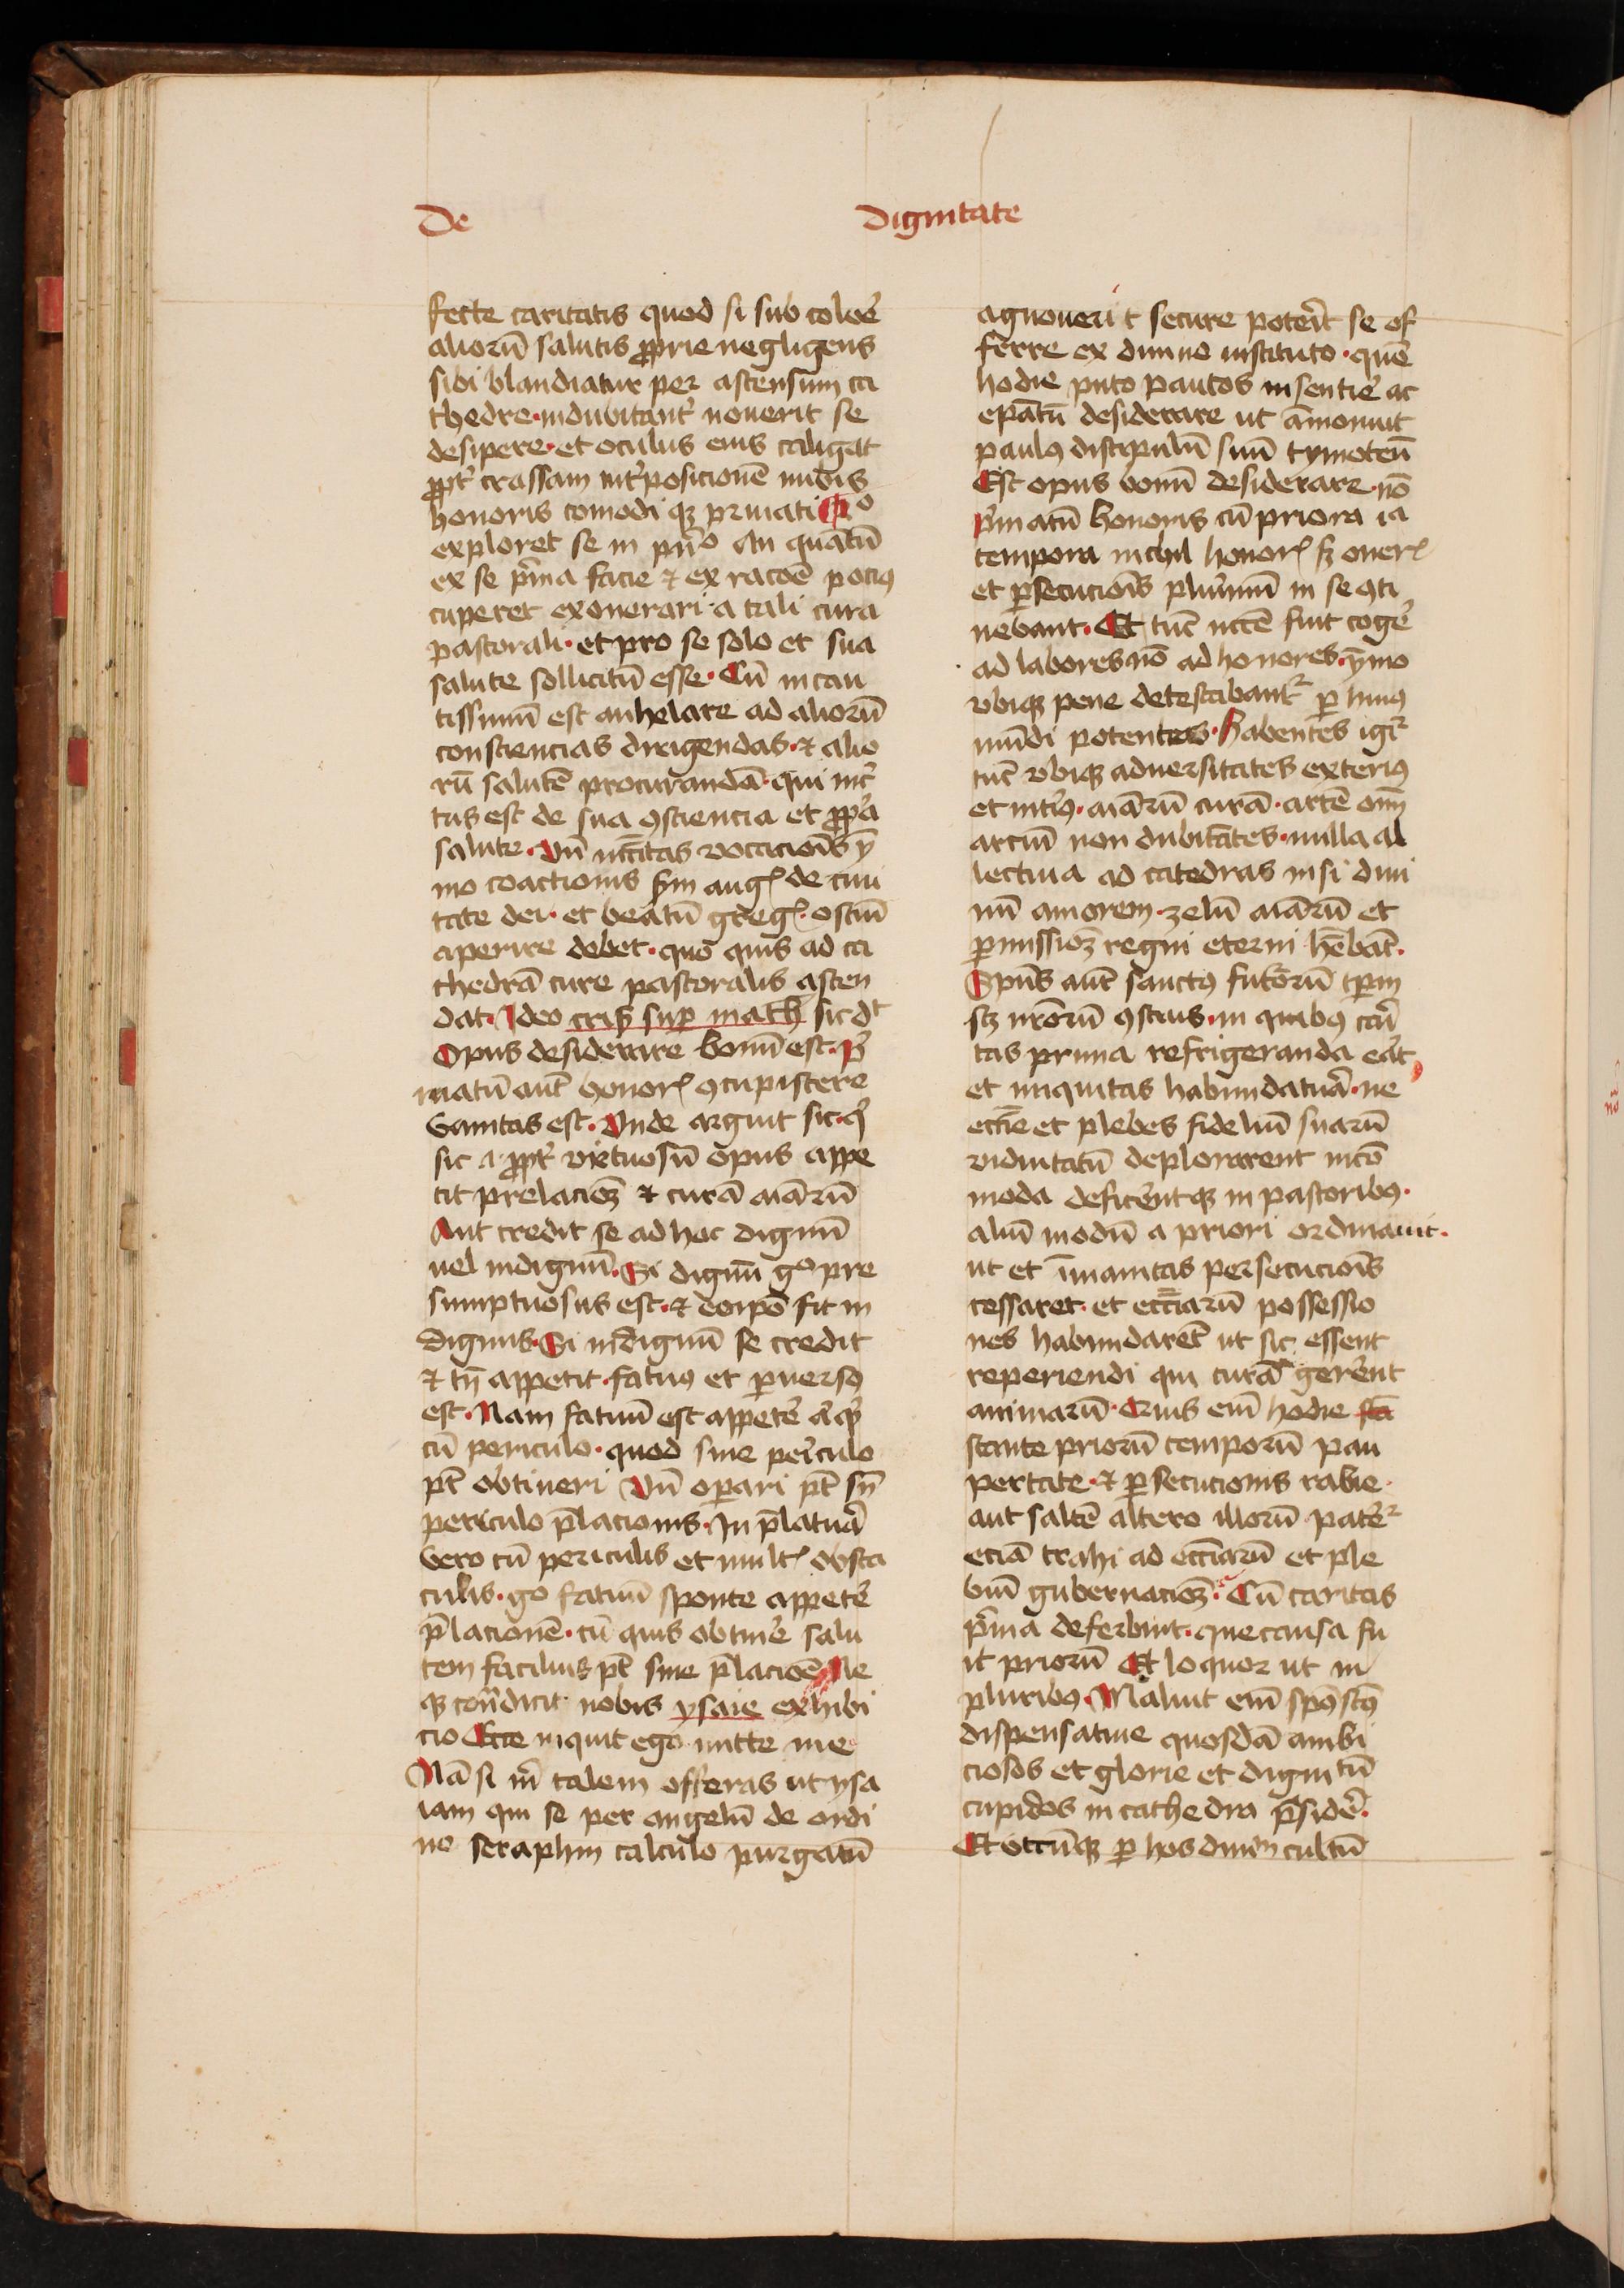 De dignitate
fecte caritatis quod si sub coloꝛe᷑
alioꝛū salutis ꝓprie negligens
sibi blandiatur per ascensum ca
thedre · indubitant᷑ nouerit se
desipere · et oculus eius caligat
ꝓpt᷑ crassam int᷑posicionē nubis
honoris comodi qꝫ priuati
exploret se in pn̄o An quātū
ex se p᷑ma facie ⁊ ex racōe pociꝰ
cuperet exonerari a tali cura
pastorali · et pro se solo et sua
salute sollicitū esse · Cū incau
tissimū est anhelare ad alioꝛū
consciencias dirigendas · ⁊ alio
rū salutē procurandā · qui inc᷑
tus est de sua ꝯsciencia et ꝓp᷑a
salute · Vn̄ nc̄c̄itas vocacioīs ȳ
mo coactionis scd̄m augꝰ de ciui
tate dei · et beatū gregꝰ · ostiū
aperire debet · quo quis ad ca
thedrā cure pastoralis ascen
dat · Ideo cris᷑ suꝑ math sic dt
Opus desiderare bonū est · p᷑
matū aut̄ honorꝭ ꝯcupiscere
vanitas est · Vnde arguit sic · q᷑
sic a · ꝓpt᷑ virtuosū opus appe
tit prelacioꝫ ⁊ curā aīarū
Aut credit se ad hoc dignū
uel indignū · Si dignū gᵒ pre
sumptuosus est · ⁊ eoip̄o fit in
dignus · Si indignū se credit
⁊ tn̄ appetit · fatuꝰ et ꝑuersꝰ
est · Nam fatuū est appete᷑
cū periculo · quod sine pe᷑iculo
pt̄ obtineri Vn̄ oꝑari pt̄ sn̄
periculo p̄lacionis · In p̄latura᷑
vero cū periculis et multꝭ obsta
culis · go fatuū sponte appete᷑
p̄lacionē · cū quis obtine᷑ salu
tem facilius pt̄ sine p̄lacioē Ne
qꝫ cont᷑dicit nobis ysaie exhibi
cio Ecce inquit ego mitte me
Nā si m᷑ talem offeras ut ysa
iam qui se per angelū de ordi
ne seraphin calculo purgatū
agnouerit secure pote᷑it se of
ferre ex diuino instituto · quē
hodie puto paucos insentire᷑ ac
ep̄atū desiderare ut āmonuit
paulꝰ discipulū suū tymoteū
Est opus bonū desiderare · nō
p᷑matū honoris cū priora ia
tempora nichil honorꝭ sꝫ onerꝭ
et ꝑsecucioīs plurimū in se ꝯti
nebant · Et tūc nc̄c̄e fuit coge᷑
ad labores nō ad honores · ȳmo
vbiqꝫ pene detestabant᷑ ꝑ huiꝰ
mūdi potentes · Habentes igr᷑
tūc vbiqꝫ aduersitates exteriꝰ
et int᷑iꝰ · aīarū curā · artē om̄
arciū non dubitātes · nulla al
lectiua ad catedras nisi diui
nū amorem · zelū aīarū et
ꝑmissioꝫ regni eterni hēbāt ·
Spūs aut̄ sanctꝰ futoꝛū tp̄m
sꝫ nr̄orū ꝯscius · in quibꝰ cari᷑
tas prima refrigeranda eāt
et iniquitas habundatura᷑ · ne
eccīe et plebes fideliū suarū
viduitatū deplorarent incō
moda deficerētqꝫ in pastoribꝰ ·
aliū modū a priori ordinauit ·
ut et īmanitas persecucioīs
cessaret · et ecc̄iarū possessio
nes habundarēt ut sic essent
reperiendi qui curā gererēt
animarū · Quis eni̅ hodie
stante prioꝛū temporū pau
pertate · ⁊ ꝑsecucionis rabie ·
aut saltē altero illorū pate᷑r
eciā trahi ad ecc̄iarū et ple
biū gubernacioꝫ · Cū caritas
p᷑ma deferbuit · que causa fu
it prioꝛū Et loquor ut in
pluribꝰ · Maluit eni̅ sp̄ūs scūs
dispensatiue quosdā ambi
ciosos et glorie et dignitū
cupidos in cathedra p̄side᷑ ·
Et vtcūqꝫ ꝑ hos diuinū cultū